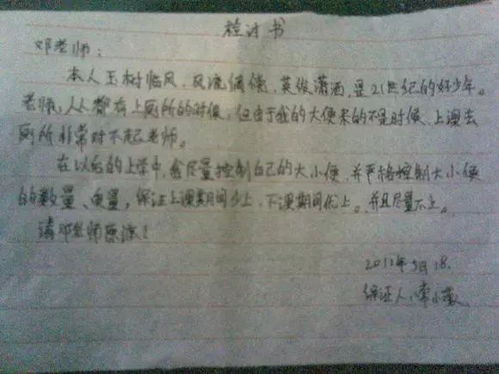 检讨书
邓老师：
本人玉树临风，风流倜傥，英俊潇洒，是21世纪的好少年。
老师，人人都有上厕所的时候，但由于我的大便来的不是时候，上课去
厕所非常对不起老师。
在以后的上学中，会尽量控制自己的大小便，并严格控制大小便
的数量、质量，保证上课期间少上，下课期间优上。并且尽量不上。
请邓老师原谅！
2011年5月18.
保证人：李小